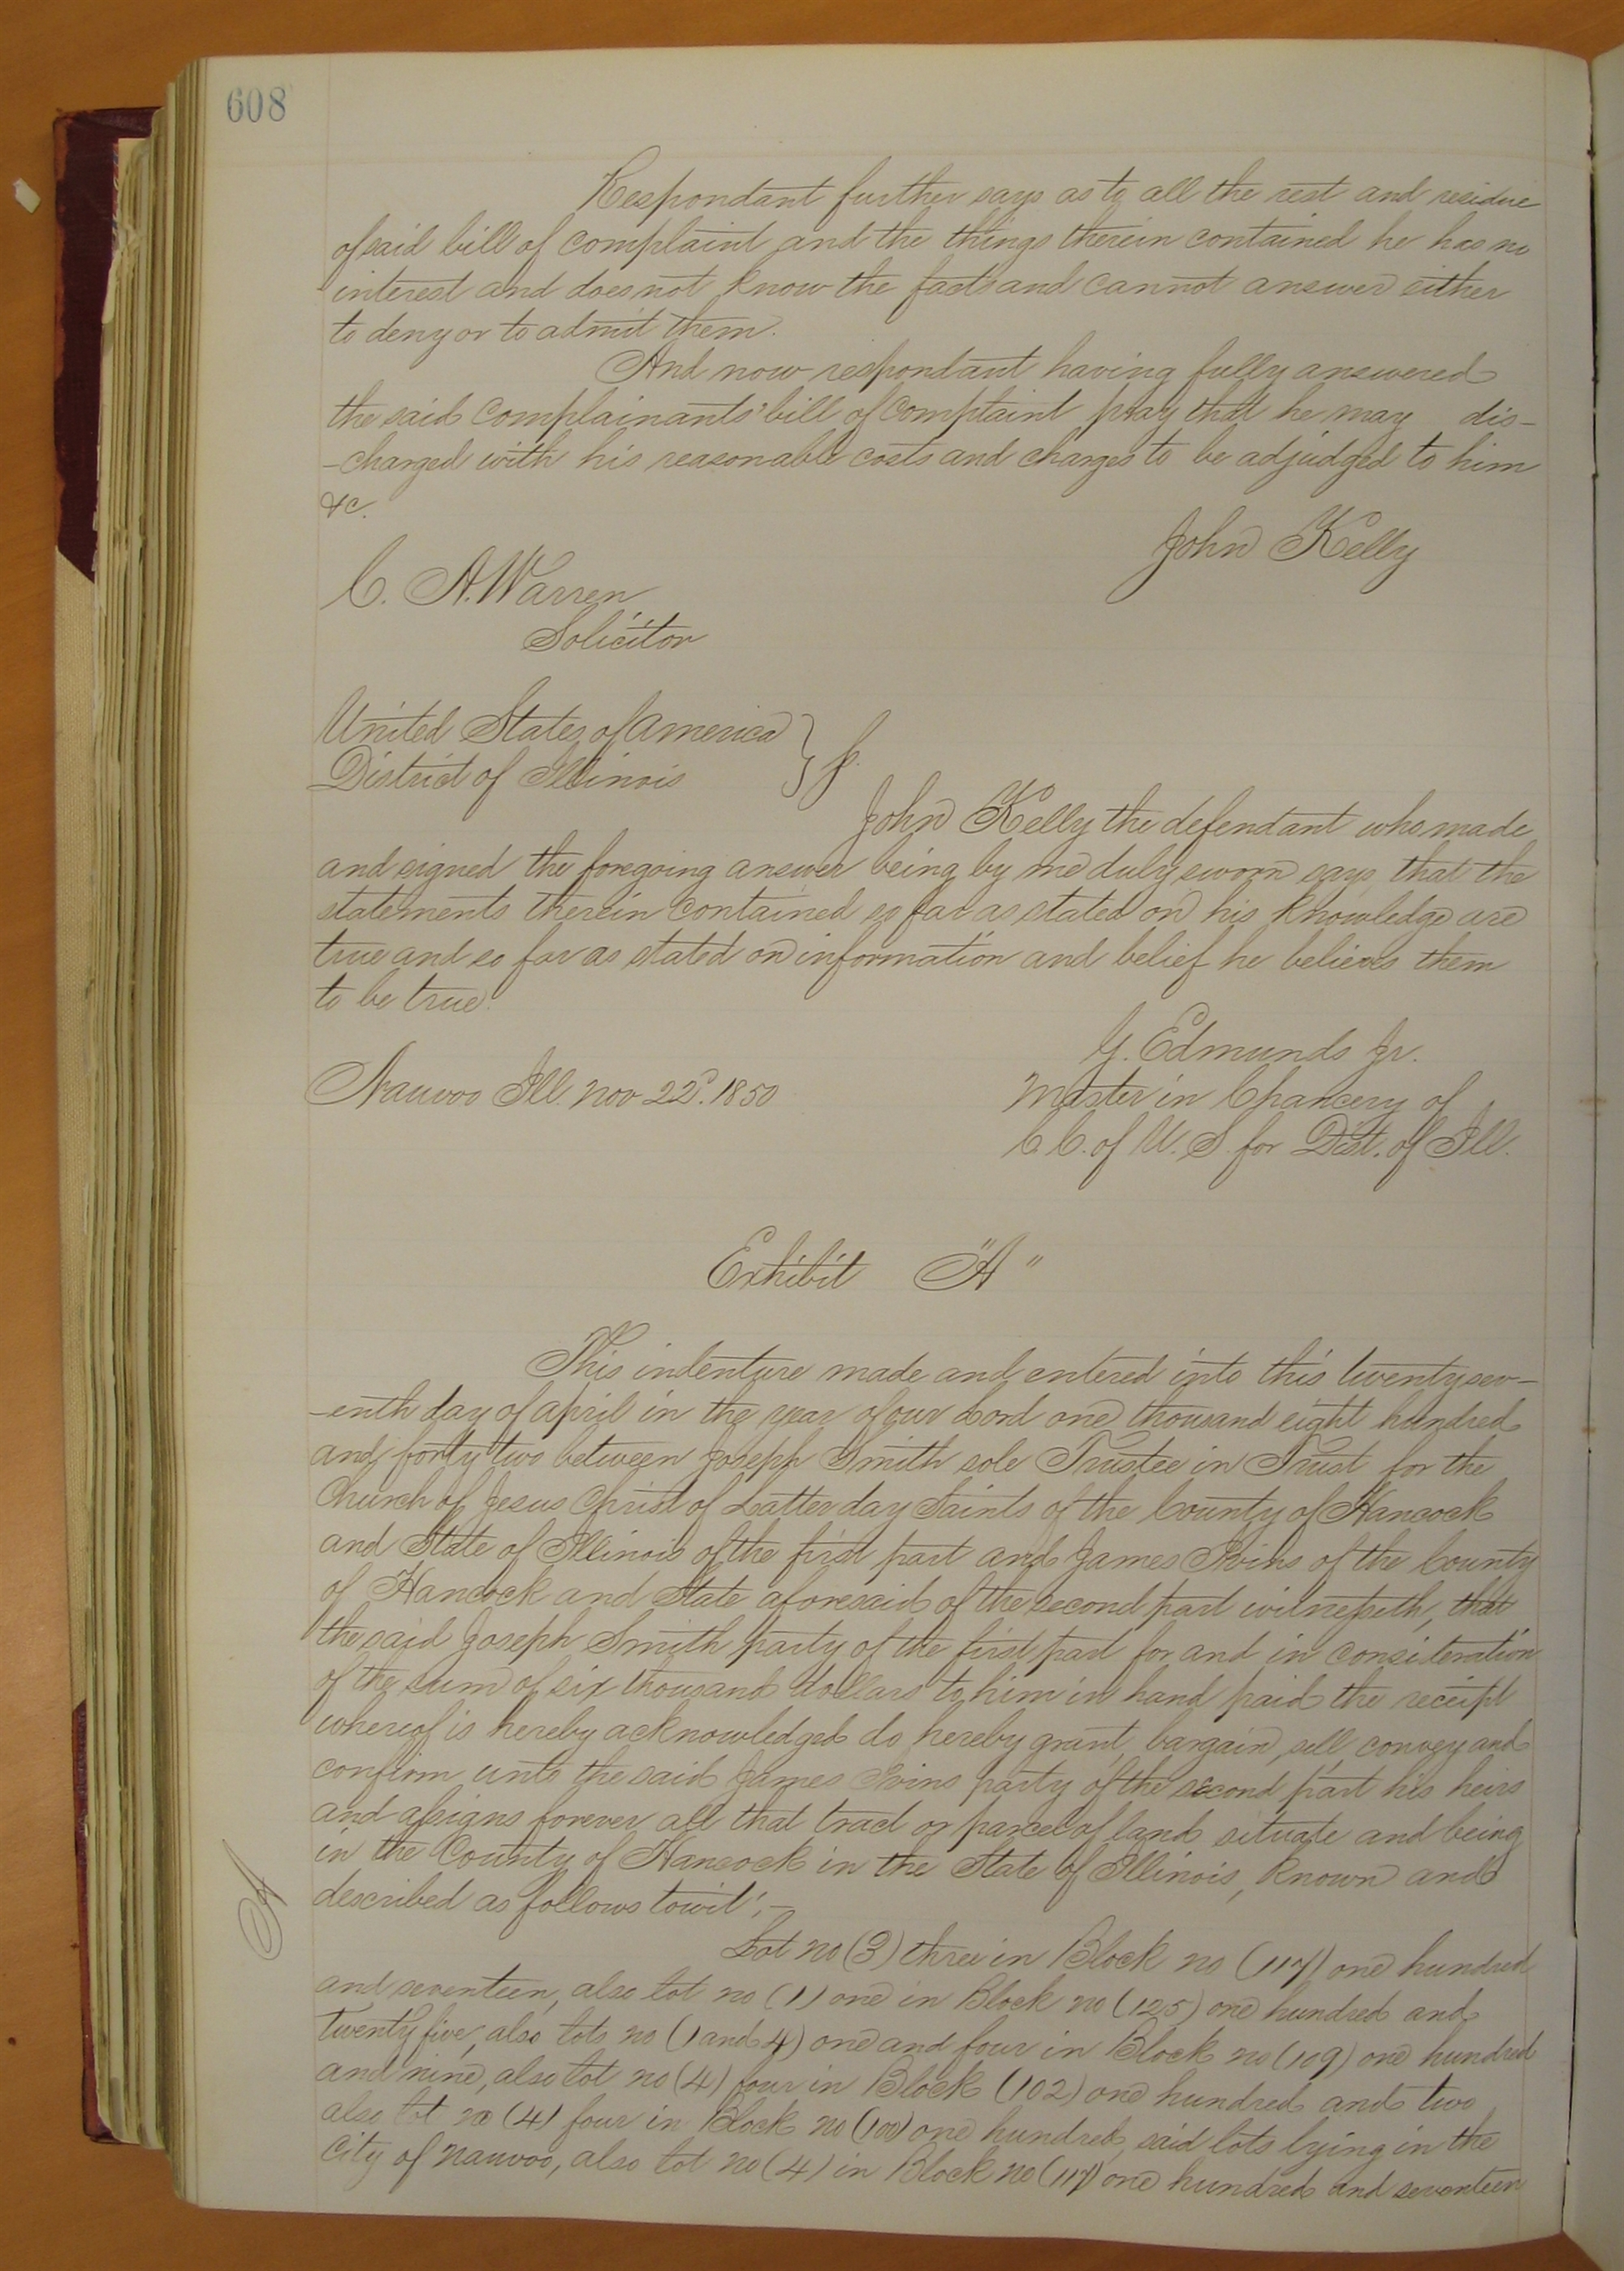 608
Respondant further says as to all the rest and residue
of said bill of complaint and the things therein contained he has no
interest and does not know the facts and cannot answer either
to deny or to admit them.
And now respondant having fully answered
the said complainants' bill of complaint pray that he may dis-
-charged with his reasonable costs and charges to be adjudged to him
&c.
John Kelly
C. A. Warren
Solicitor
United States of America }
District of Illinois
John Kelly the defendant who made
and signed the foregoing answer being by me duly sworn says that the
statements therein contained so far as stated on his knowledge are
true and so far as stated on information and belief he believes them
to be true.
G. Edmunds Jr.
Nauvoo Ill. Nov 22d. 1850
Master in Chancery of
C. C. of U. S. for Dist. of Ill.
Exhibit "A"
This indenture made and entered into this twenty sev-
-enth day of April in the year of our Lord one thousand eight hundred
and forty two between Joseph Smith sole Trustee in Trust for the
Church of Jesus Christ of Latter day Saints of the County of Hancock
and State of Illinois of the first part and James Ivins of the County
of Hancock and State aforesaid of the second part witnesseth, that
the said Joseph Smith party of the first part for and in consideration
of the sum of six thousand dollars to him in hand paid the receipt
whereof is hereby acknowledged do hereby grant, bargain, sell, convey and
confirm unto the said James Ivins party of the second part his heirs
and assigns forever all that tract or parcel of land situate and being
in the County of Hancock in the State of Illinois, known and
described as follows towit;-
A
Lot no (3) three in Block no (117) one hundred
and seventeen, also lot no (1) one in Block no (125) one hundred and
twenty five, also lots no (1 and 4) one and four in Block no (109) one hundred
and nine, also lot no (4) four in Block (102) one hundred and two
also lot no (4) four in Block no (100) one hundred, said lots lying in the
City of Nauvoo, also lot no (4) in Block no (117) one hundred and seventeen